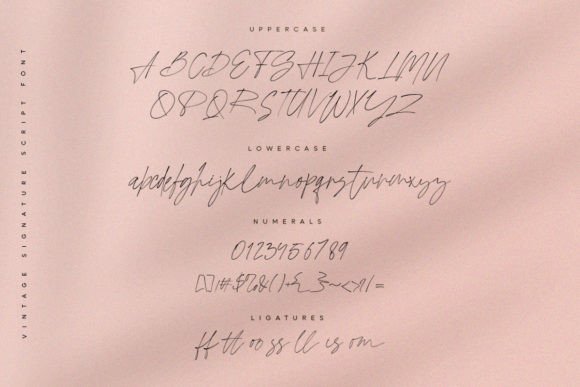 VINTAGE SIGNATURE SCRIPT FONT
UPPERCASE
ABCDEFGHIJKLMN
OPQRSTUVWXYZ
LOWERCASE
abcdefghijklmnopqrstuvwxyz
NUMERALS
0123456789
[]|#$%&()+{_}~<>/|=
LIGATURES
ff tt oo ss ll is om